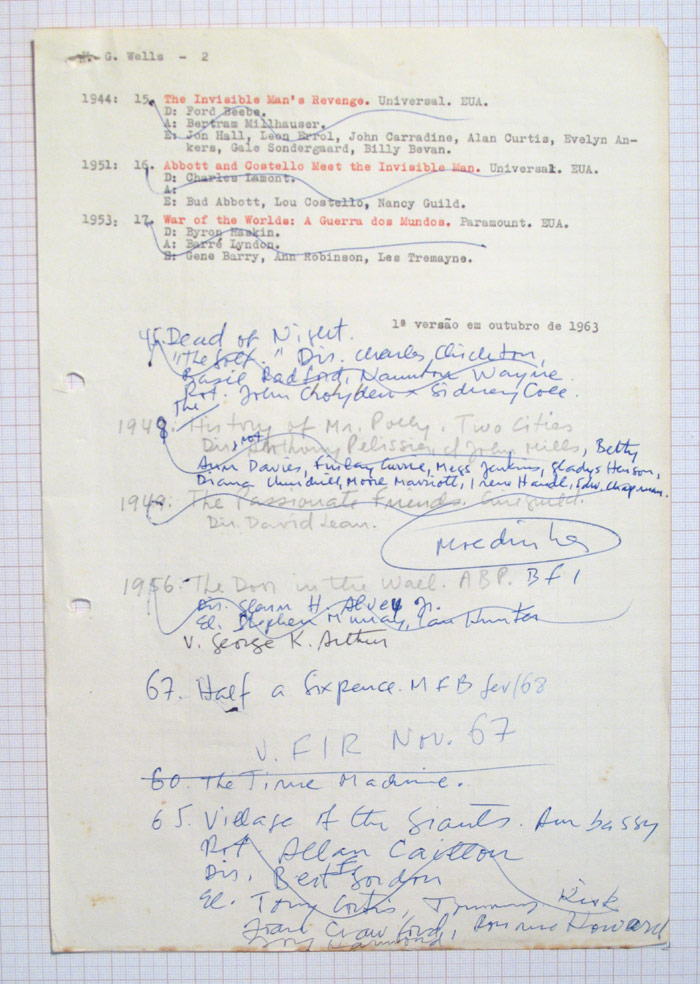 H. G. Wells - 2
1944: 15. The Invisible Man's Revenge. Universal. EUA.
D: Ford Beebe.
A: Bertram Millhauser.
E: Jon Hall, Leon Errol, John Carradine, Alan Curtis, Evelyn An-
kers, Gale Sondergaard, Billy Bevan.
1951: 16. Abbott and Costello Meet the Invisible Man. Universal. EUA.
D: Charles Lamont.
A:
E: Bud Abbott, Lou Costello, Nancy Guild.
1953: 17. War of the Worlds: A Guerra dos Mundos. Paramount. EUA.
D: Byron Haskin.
A: Barré Lyndon.
E: Gene Barry, Ann Robinson, Les Tremayne.
1ª versão em outubro de 1963
45. Dead of Night.
"The Golf." Dir. Charles Chrichton,
Basil Radford, Naunton Wayne.
Rot. John Croyden Sidney Cole
The
1948: History of Mr. Polly. Two Cities
Dir, Rot Anthony Pelissier John Mills, Betty
Ann Davies, Finlay Currie, Megs Jenkins, Gladys Henson,
Diana Churchill, Moore Marriott, Irene Handl, Edw. Chapman.
1949: The Passionate Friends. Cineguild.
Dir. David Lean.
1956. The Door in the Wall. ABP. BFI
Dir. Glenn H. Alvey Jr.
El. Stephen Murray, Ian Hunter
V. George K. Arthur
67. Half a Sixpence. MFB fev/68
V. FIR Nov. 67
60. The Time Machine.
65. Village of the Giants. Embassy
Rot Allan Caillou
Dir. Bert I Gordon
El. Tommy Kirk